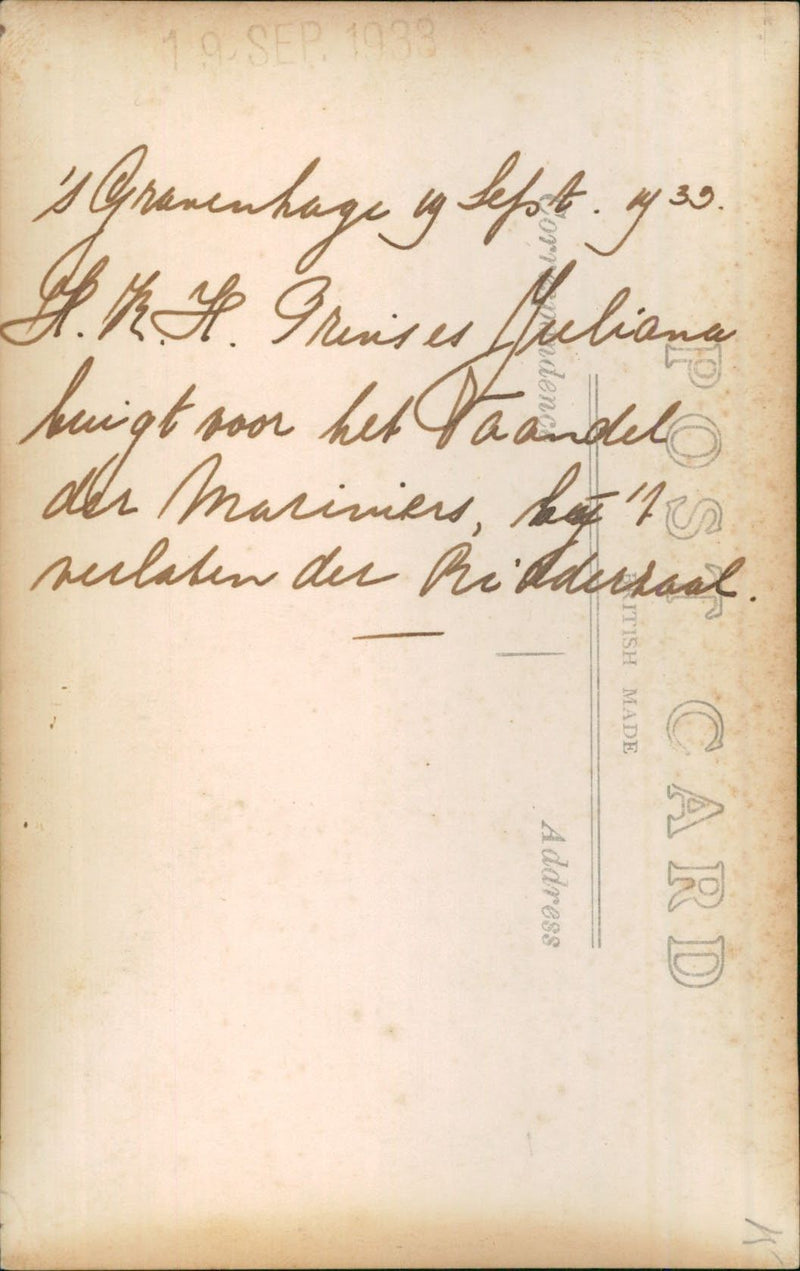 19 SEP. 1933
's Gravenhage 19 Sept. 1933.
H. K. H. Prinses Juliana
buigt voor het Vaandel
der Mariniers, bij 't
verlaten der Ridderzaal.
Correspondence
POST CARD
BRITISH MADE
Address